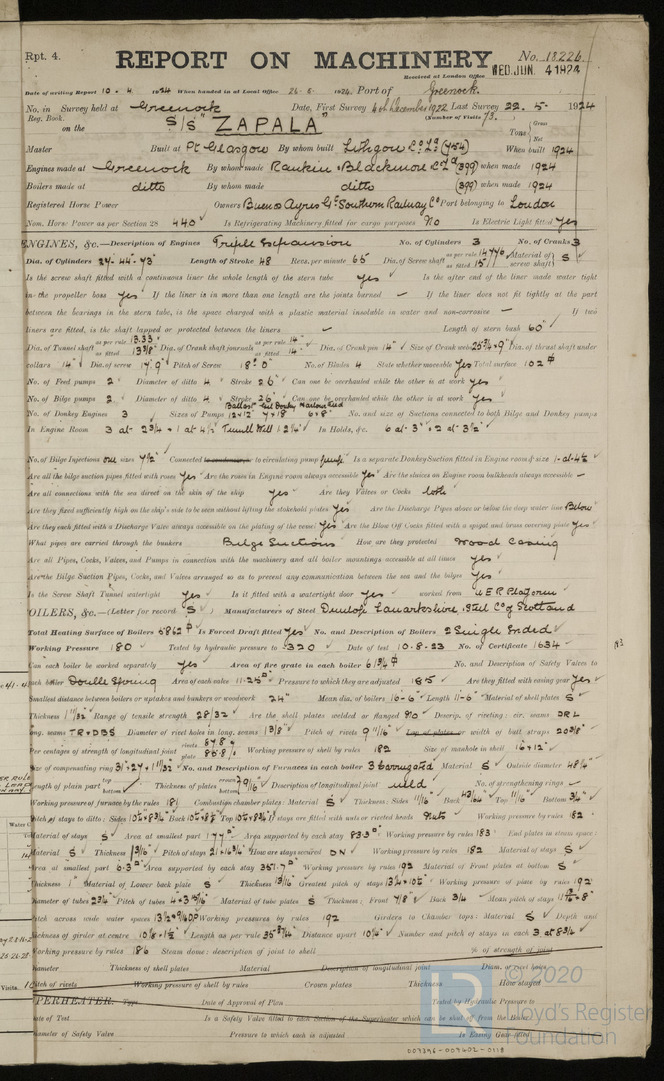 Rpt. 4.
REPORT ON MACHINERY
No. 18226
Received at London Office WED. JUN. 4 1924
Date of writing Report 10 - 4 1924 When handed in at Local Office 26 - 5 1924. Port of Greenock.
No. in Survey held at Greenock Date, First Survey 4th December 1922 Last Survey 22. 5 - 1924
Reg. Book. (Number of Visits 73.
on the S/S "ZAPALA" Tons Gross Net
Master Built at Pt Glasgow By whom built Lithgow Ld (754) When built 1924
Engines made at Greenock By whom made Rankin & Blackmore Ld (399) when made 1924
Boilers made at ditto By whom made ditto (399) when made 1924
Registered Horse Power Owners Buenos Ayres Gt Southern Railway Co Port belonging to London
Nom. Horse Power as per Section 28 440 Is Refrigerating Machinery fitted for cargo purposes No Is Electric Light fitted Yes
ENGINES, &c.—Description of Engines Triple Expansion No. of Cylinders 3 No. of Cranks 3
Dia. of Cylinders 27-44-73" Length of Stroke 48 Revs. per minute 65 Dia. of Screw shaft as per rule as fitted Material of screw shaft S
Is the screw shaft fitted with a continuous liner the whole length of the stern tube yes Is the after end of the liner made water tight
in the propeller boss yes If the liner is in more than one length are the joints burned — If the liner does not fit tightly at the part
between the bearings in the stern tube, is the space charged with a plastic material insoluble in water and non-corrosive — If two
liners are fitted, is the shaft lapped or protected between the liners — Length of stern bush 60"
Dia. of Tunnel shaft as per rule 13.33 as fitted 13 3/8" Dia. of Crank shaft journals as per rule 14" as fitted 14" Dia. of Crank pin 14" Size of Crank webs Dia. of thrust shaft under
collars 14" Dia. of screw 17'-9" Pitch of Screw 18'-0" No. of Blades 4 State whether moveable Yes Total surface 102
No. of Feed pumps 2 Diameter of ditto 4 Stroke 26" Can one be overhauled while the other is at work yes
No. of Bilge pumps 2 Diameter of ditto 4 Stroke 26" Can one be overhauled while the other is at work yes
No. of Donkey Engines 3 Sizes of Pumps No. and size of Suctions connected to both Bilge and Donkey pumps
In Engine Room 3 at 2 3/4 + 1 at 4 1/2 Tunnel Well 1 2 1/4" In Holds, &c. 6 at 3" + 2 at 3 1/2"
No. of Bilge Injections one sizes 7 1/2" Connected to condenser, or to circulating pump pump Is a separate Donkey Suction fitted in Engine room & size 1 at 4 1/2
Are all the bilge suction pipes fitted with roses yes Are the roses in Engine room always accessible yes Are the sluices on Engine room bulkheads always accessible —
Are all connections with the sea direct on the skin of the ship yes Are they Valves or Cocks both
Are they fixed sufficiently high on the ship's side to be seen without lifting the stokehold plates yes Are the Discharge Pipes above or below the deep water line Below
Are they each fitted with a Discharge Valve always accessible on the plating of the vessel Yes Are the Blow Off Cocks fitted with a spigot and brass covering plate yes
What pipes are carried through the bunkers Bilge Suctions How are they protected Wood Casing
Are all Pipes, Cocks, Valves, and Pumps in connection with the machinery and all boiler mountings accessible at all times yes
Are the Bilge Suction Pipes, Cocks, and Valves arranged so as to prevent any communication between the sea and the bilges yes
Is the Screw Shaft Tunnel watertight yes Is it fitted with a watertight door yes worked from U E R Platform
OILERS, &c.—(Letter for record S) Manufacturers of Steel Dunlop Lanarkshire, Steel Co of Scotland
Total Heating Surface of Boilers 5862 Is Forced Draft fitted yes No. and Description of Boilers 2 Single Ended
Working Pressure 180 Tested by hydraulic pressure to 320 Date of test 10-8-23 No. of Certificate 1634
Can each boiler be worked separately yes Area of fire grate in each boiler 61 3/4 No. and Description of Safety Valves to
each boiler Double Spring Area of each valve 11.25 Pressure to which they are adjusted 185 Are they fitted with easing gear yes
Smallest distance between boilers or uptakes and bunkers or woodwork 24" Mean dia. of boilers 16-6" Length 11-6" Material of shell plates S
Thickness 1 11/32 Range of tensile strength 28/32 Are the shell plates welded or flanged No Descrip. of riveting: cir. seams DRL
long. seams TR+DBS Diameter of rivet holes in long. seams 1 3/8" Pitch of rivets 9 11/16 Lap of plates or width of butt straps 20 3/8"
Per centages of strength of longitudinal joint rivets 87.8 plate 85.8 Working pressure of shell by rules 182 Size of manhole in shell 16 x 12"
Size of compensating ring No. and Description of Furnaces in each boiler 3 Corrugated Material S Outside diameter 48 1/4"
Length of plain part top bottom Thickness of plates crown bottom 9/16" Description of longitudinal joint weld No. of strengthening rings —
Working pressure of furnace by the rules 181 Combustion chamber plates: Material S Thickness: Sides 11/16" Back 43/64" Top 11/16" Bottom 3/4"
Pitch of stays to ditto: Sides Back Top If stays are fitted with nuts or riveted heads Nuts Working pressure by rules 182
Material of stays S Area at smallest part 1.77 Area supported by each stay 83.3 Working pressure by rules 183 End plates in steam space:
Material S Thickness 1 3/16" Pitch of stays How are stays secured DN Working pressure by rules 182 Material of stays S
Area at smallest part 6.3 Area supported by each stay 357.7 Working pressure by rules 192 Material of Front plates at bottom S
Thickness 1" Material of Lower back plate S Thickness 13/16" Greatest pitch of stays Working pressure of plate by rules 192
Diameter of tubes 2 3/4" Pitch of tubes Material of tube plates S Thickness: Front 7/8" Back 3/4" Mean pitch of stays
Pitch across wide water spaces Working pressures by rules 192 Girders to Chamber tops: Material S Depth and
thickness of girder at centre Length as per rule Distance apart 10 1/4" Number and pitch of stays in each 3 at 8 3/4
Working pressure by rules 186 Steam dome: description of joint to shell % of strength of joint
Diameter Thickness of shell plates Material Description of longitudinal joint Diam. of rivet holes
Pitch of rivets Working pressure of shell by rules Crown plates Thickness How stayed
UPERHEATER. Type Date of Approval of Plan Tested by Hydraulic Pressure to
Date of Test Is a Safety Valve fitted to each Section of the Superheater which can be shut off from the Boiler
Diameter of Safety Valve Pressure to which each is adjusted Is Easing Gear fitted
© 2020
Lloyd's Register
Foundation
007396-007402-0118